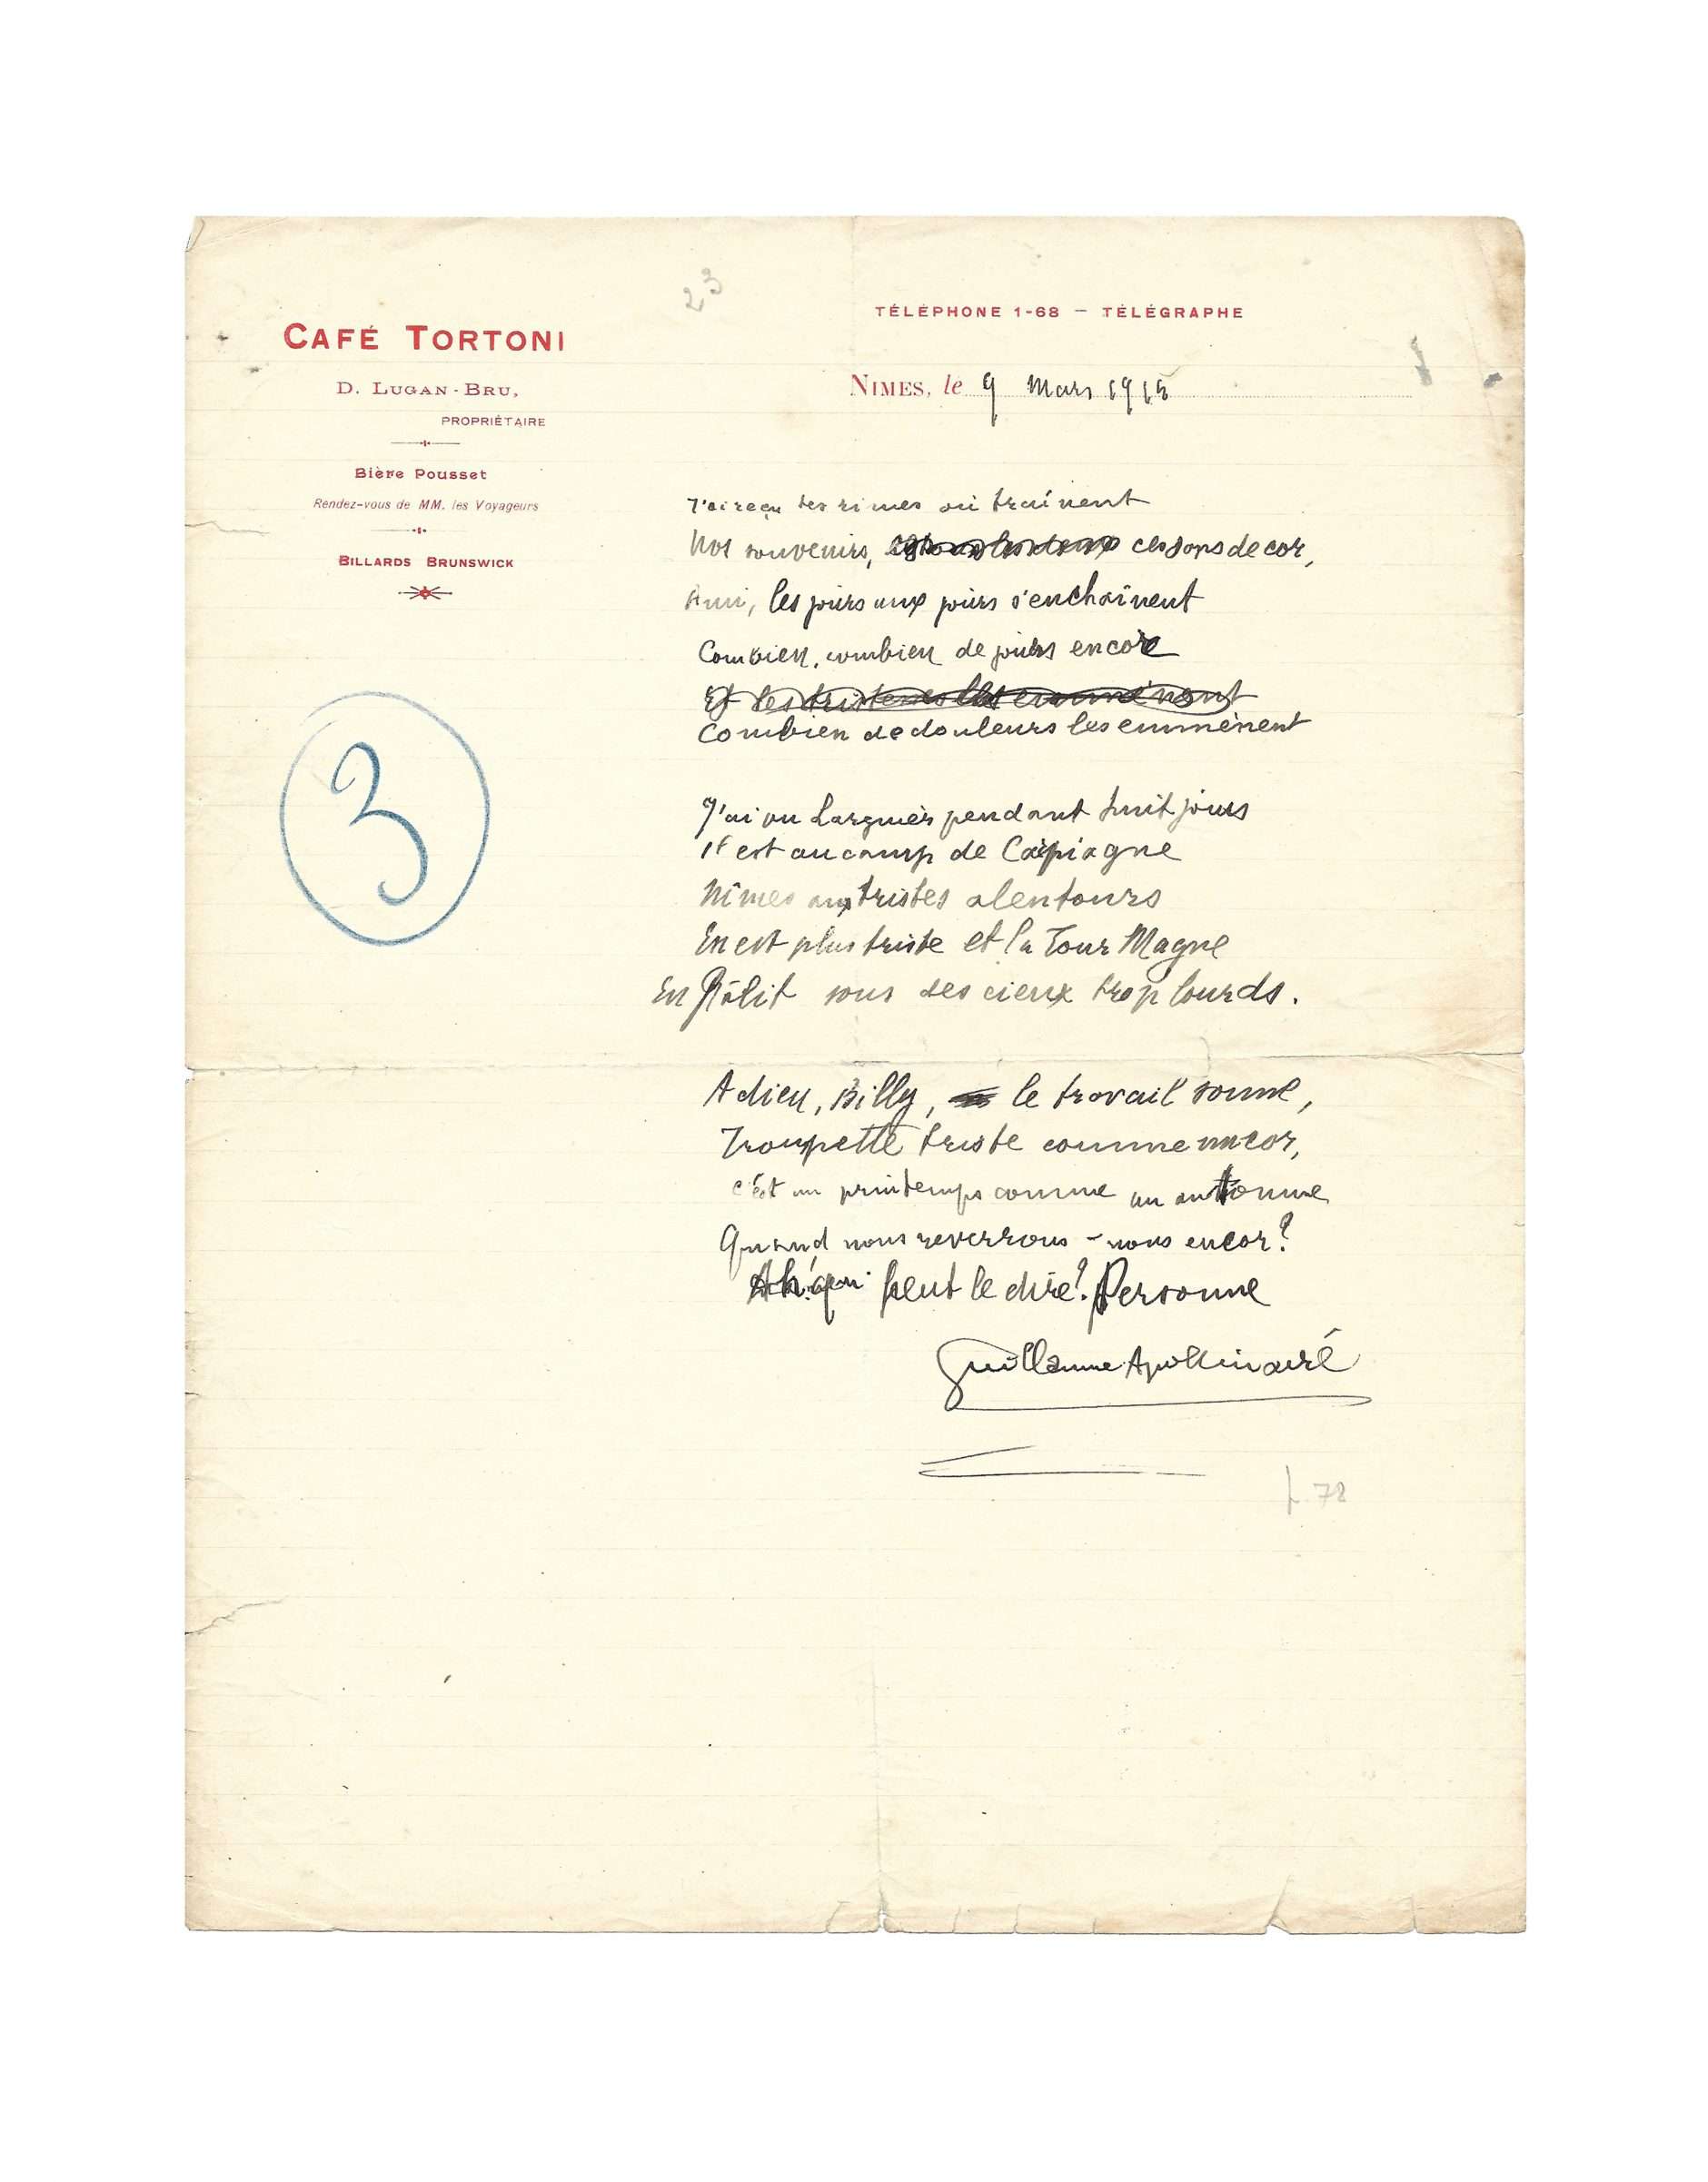 23
TÉLÉPHONE 1-68 — TÉLÉGRAPHE
CAFÉ TORTONI
D. LUGAN-BRU,
PROPRIÉTAIRE
Bière Pousset
Rendez-vous de MM. les Voyageurs
BILLARDS BRUNSWICK
NIMES, le 9 Mars 1915
J'ai reçu tes rimes où traînent
Nos souvenirs, ces sons de cor,
Ami, les jours aux jours s'enchaînent
Combien, combien de jours encore
Et les tristesses les emmènent
Combien de douleurs les emmènent
3
J'ai vu Larguier pendant huit jours
Il est au camp de Carpiagne
Nîmes aux tristes alentours
En est plus triste et la Tour Magne
En Pâlit sous des cieux trop lourds.
Adieu, Billy, le travail sonne,
Trompette triste comme un cor,
C'est un printemps comme un automne
Quand nous reverrons-nous encor?
Ah! qui peut le dire? Personne
Guillaume Apollinaire
p. 78